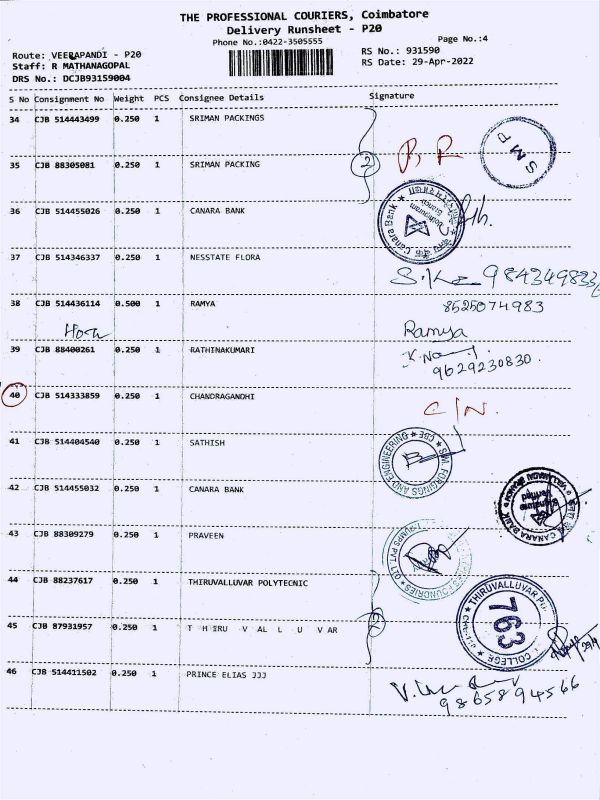 THE PROFESSIONAL COURIERS, Coimbatore
Delivery Runsheet - P20
Phone No.:0422-3505555
Page No.:4
Route: VEERAPANDI - P20
RS No.: 931590
Staff: R MATHANAGOPAL
RS Date: 29-Apr-2022
DRS No.: DCJB93159004
S No Consignment No Weight PCS Consignee Details Signature
34 CJB 514443499 0.250 1 SRIMAN PACKINGS
SMP
2
35 CJB 88305081 0.250 1 SRIMAN PACKING
36 CJB 514455026 0.250 1 CANARA BANK
Canara Bank
37 CJB 514346337 0.250 1 NESSTATE FLORA
38 CJB 514436114 0.500 1 RAMYA
8525074983
Ramya
39 CJB 88400261 0.250 1 RATHINAKUMARI
9629230830.
40 CJB 514333859 0.250 1 CHANDRAGANDHI
C/N.
41 CJB 514404540 0.250 1 SATHISH
FORGINGS AND ENGINEERING ★ CBE ★
42 CJB 514455032 0.250 1 CANARA BANK
CANARA BANK
43 CJB 88309279 0.250 1 PRAVEEN
44 CJB 88237617 0.250 1 THIRUVALLUVAR POLYTECNIC
THIRUVALLUVAR
763
COLLEGE
45 CJB 87931957 0.250 1 T HIRU VAL L U VAR
46 CJB 514411502 0.250 1 PRINCE ELIAS JJJ
9865894566